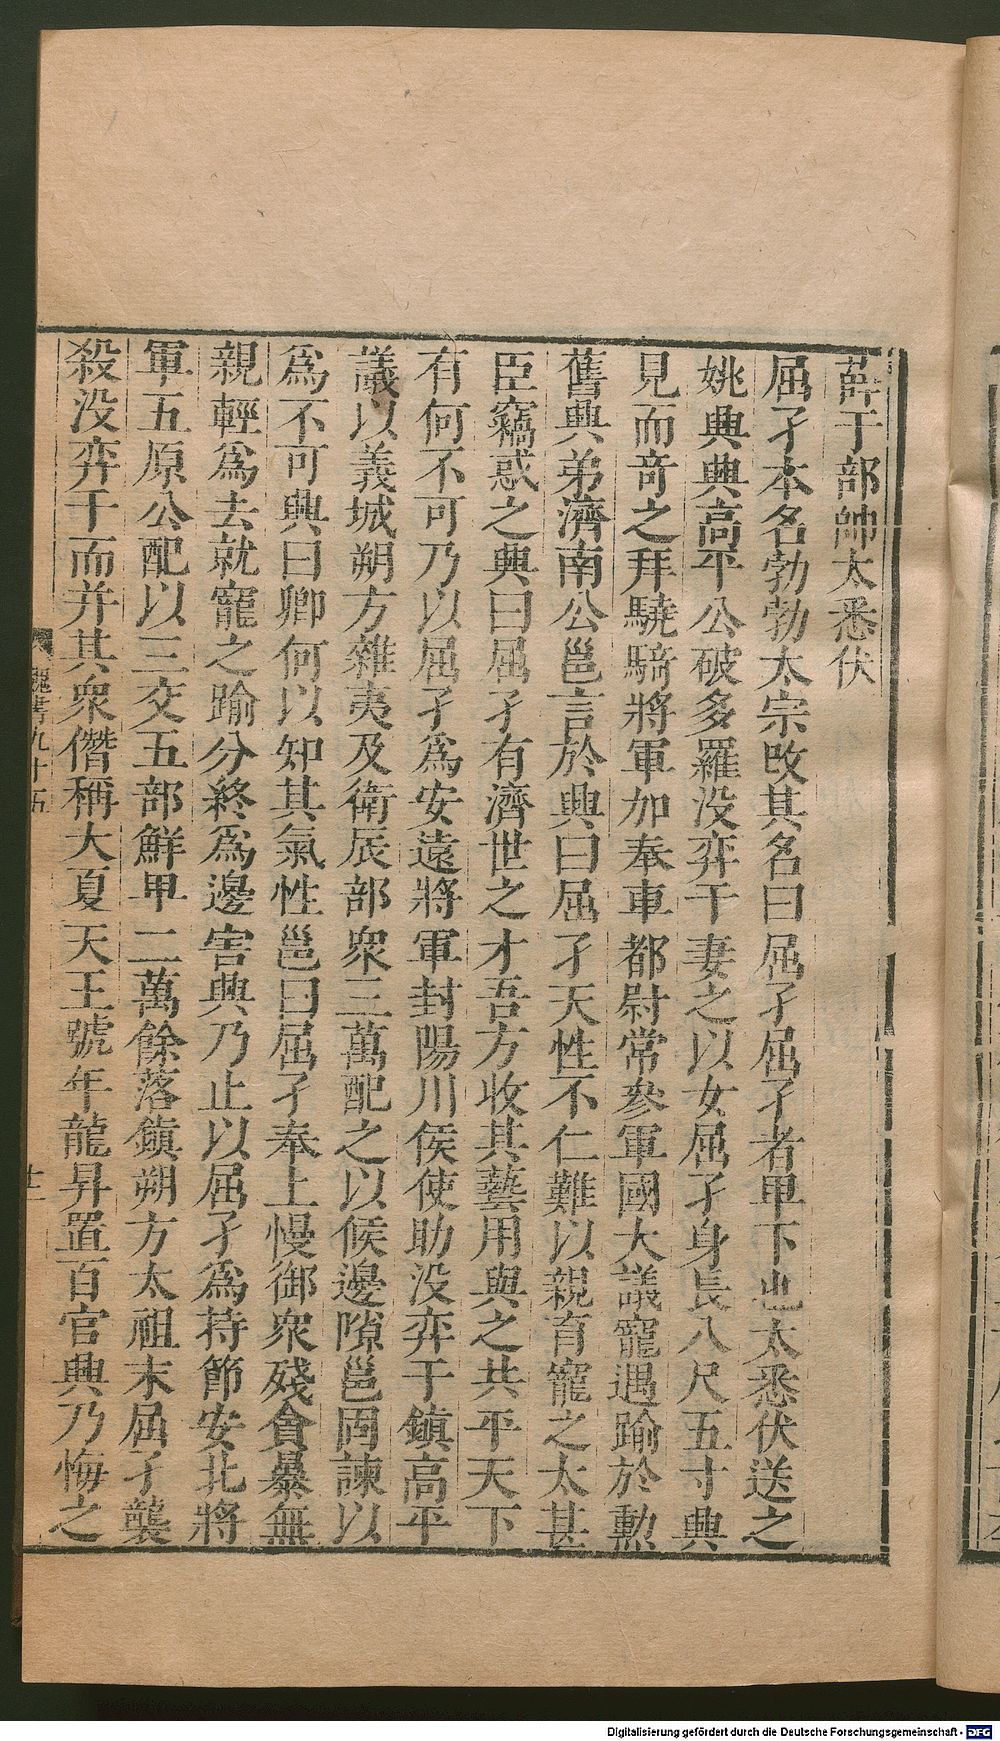 薛于部帥太悉伏
屈孑本名勃勃太宗改其名曰屈孑屈孑者卑下也太悉伏送之
姚興興高平公破多羅没弈干妻之以女屈孑身長八尺五寸興
見而竒之拜驍騎將軍加奉車都尉常參軍國大議寵遇踰於勲
舊興弟濟南公邕言於興曰屈孑天性不仁難以親育寵之太甚
臣竊惑之興曰屈孑有濟世之才吾方收其藝用與之共平天下
有何不可乃以屈孑爲安遠將軍封陽川侯使助没弈干鎮高平
議以義城朔方雜夷及衛辰部衆三萬配之以候邊隙邕固諫以
爲不可興曰卿何以知其氣性邕曰屈孑奉上慢御衆殘貪暴無
親輕爲去就寵之踰分終爲邊害興乃止以屈孑爲持節安北將
軍五原公配以三交五部鮮卑二萬餘落鎮朔方太祖末屈孑襲
殺没弈干而并其衆僭稱大夏天王號年龍昇置百官興乃悔之
魏書九十五
十二
Digitalisierung gefördert durch die Deutsche Forschungsgemeinschaft - DFG